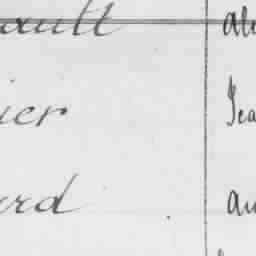 ault al
ier Jea
ard au